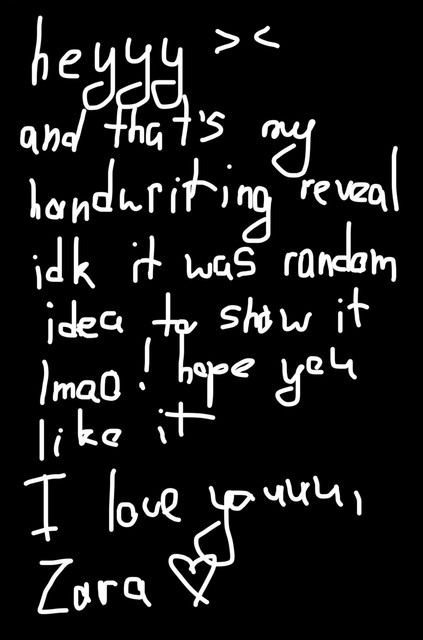 heyyy > <
and that's my
handwriting reveal
idk it was random
idea to show it
lmao! hope you
like it
I love youuuu,
Zara ♡